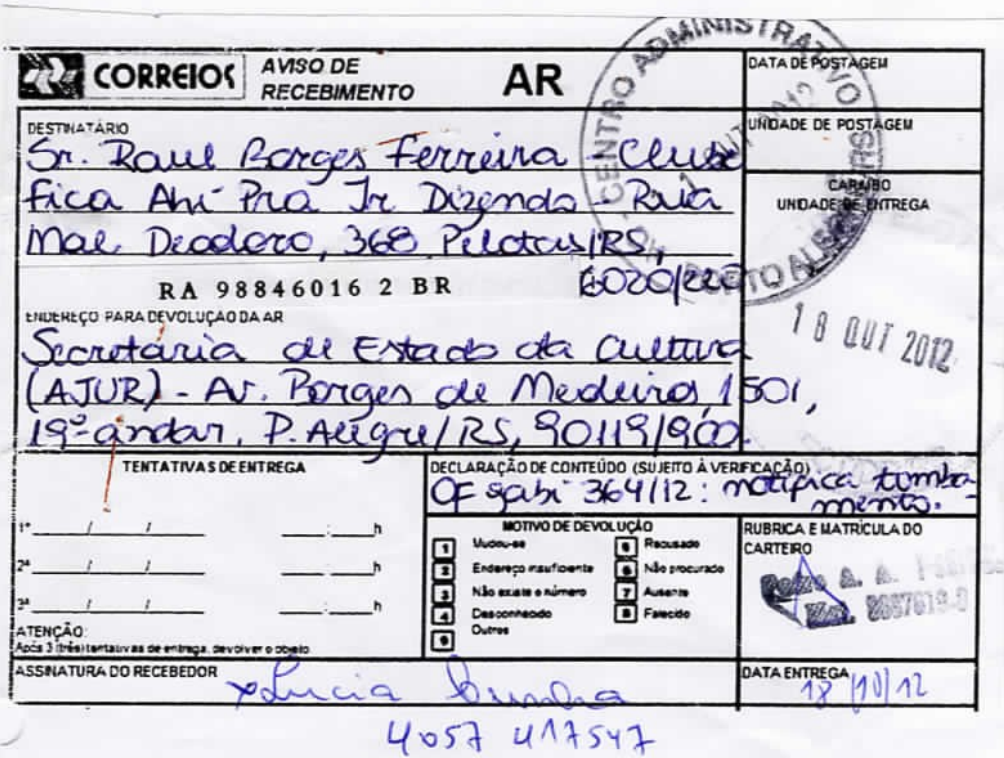 CORREIOS
AVISO DE
RECEBIMENTO
AR
DATA DE POSTAGEM
UNIDADE DE POSTAGEM
CARIMBO
UNIDADE DE ENTREGA
CENTRO ADMINISTRATIVO
PORTO ALEGRE RS
DESTINATÁRIO
Sr. Raul Borges Ferreira - Clube
Fica Ahí Pra Ir Dizendo - Rua
Mal Deodoro, 368, Pelotas/RS,
RA 98846016 2 BR
18 OUT 2012
ENDEREÇO PARA DEVOLUÇÃO DA AR
Secretária de Estado da Cultura
(AJUR) - Av. Borges de Medeiros, 1501,
19º andar, P. Alegre/RS, 90119/900.
TENTATIVAS DE ENTREGA
1ª ___/___/___ ___:___h
2ª ___/___/___ ___:___h
3ª ___/___/___ ___:___h
ATENÇÃO:
Após 3 (três) tentativas de entrega, devolver o objeto.
DECLARAÇÃO DE CONTEÚDO (SUJEITO À VERIFICAÇÃO)
OF gabi 364/12: notifica tomba-
mento.
MOTIVO DE DEVOLUÇÃO
1 Mudou-se
2 Endereço insuficiente
3 Não existe o número
4 Desconhecido
9 Outros
Recusado
Não procurado
7 Ausente
8 Falecido
RUBRICA E MATRÍCULA DO
CARTEIRO
A. A.
Mat.
ASSINATURA DO RECEBEDOR
Lucia Cunha
4057 417547
DATA ENTREGA
18/10/12